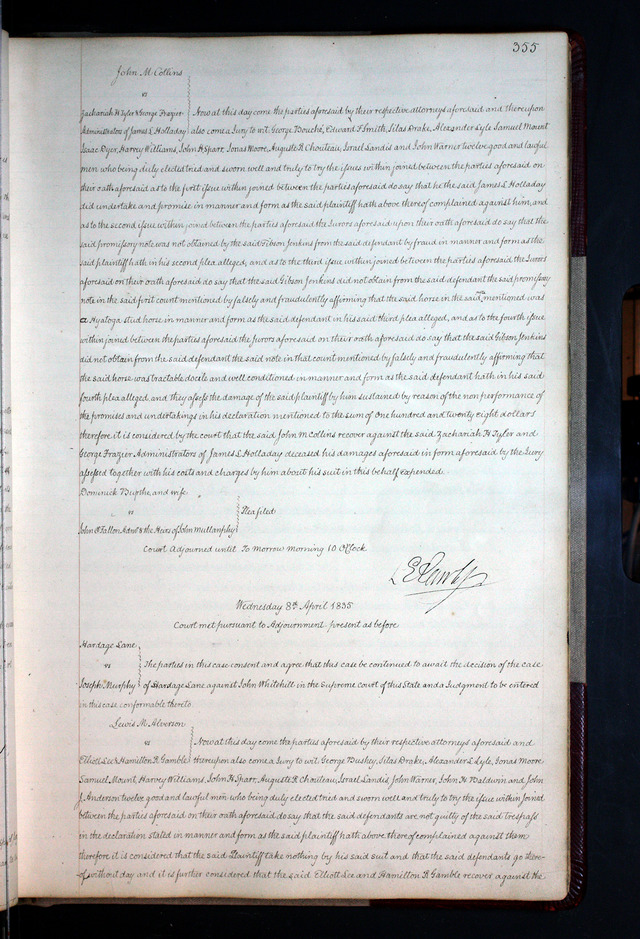 355
John M Collins
vs
Zachariah H Tyler & George Frazier Now at this day come the parties aforesaid by their respective attorneys aforesaid and thereupon
Administrators of James L Holladay also come a Jury to wit, George Bouche, Edward F Smith, Silas Drake, Alexander Lyle Samuel Mount
Isaac Dyer, Harvey Williams, John H Sparr, Jonas Moore, Auguste R Chouteau, Israel Landis and John Warner twelve good and lawful
men who being duly elected tried and sworn well and truly to try the issues within joined between the parties aforesaid on
their oath aforesaid as to the first issue within joined between the parties aforesaid do say that he the said James L Holladay
did undertake and promise in manner and form as the said plaintiff hath above thereof complained against him, and
as to the second issue within joined between the parties aforesaid the Jurors aforesaid upon their oath aforesaid do say that the
said promissory note was not obtained by the said Gibson Jenkins from the said defendant by fraud in manner and form as the
said plaintiff hath in his second plea alleged, and as to the third issue within joined between the parties aforesaid the Jurors
aforesaid on their oath aforesaid do say that the said Gibson Jenkins did not obtain from the said defendant the said promissory
note in the said first count mentioned by falsely and fraudulently affirming that the said horse in the said note mentioned was
a Hyatoga stud horse in manner and form as the said defendant in his said third plea alleged, and as to the fourth issue
within joined between the parties aforesaid the jurors aforesaid on their oath aforesaid do say that the said Gibson Jenkins
did not obtain from the said defendant the said note in that count mentioned by falsely and fraudulently affirming that
the said horse was tractable docile and well conditioned in manner and form as the said defendant hath in his said
fourth plea alleged, and they assess the damage of the said plaintiff by him sustained by reason of the non performance of
the promises and undertakings in his declaration mentioned to the sum of one hundred and twenty eight dollars
therefore it is considered by the court that the said John M Collins recover against the said Zachariah H Tyler and
George Frazier Administrators of James L Holladay deceased his damages aforesaid in form aforesaid by the Jury
assessed together with his costs and charges by him about his suit in this behalf expended.
Dominick and wife
vs Plea filed
John O'Fallon Admr & the Heirs of John Mullanphy
Court Adjourned until To Morrow morning 10 O'Clock
Wednesday 8th April 1835
Court met pursuant to Adjournment present as before
Hardage Lane
vs The parties in this case consent and agree that this case be continued to await the decision of the case
Joseph Murphy of Hardage Lane against John Whitehill in the Supreme Court of this State and a Judgment to be entered
in this case conformable thereto
Lewis M. Alverson
vs Now at this day come the parties aforesaid by their respective attorneys aforesaid and
Elliott Lee & Hamilton R Gamble thereupon also come a Jury to wit George Bushey, Silas Drake, Alexander L Lyle, Jonas Moore
Samuel Mount, Harvey Williams, John H Sparr, Auguste R Chouteau, Israel Landis, John Warner, John H Baldwin and John
J Anderson twelve good and lawful men who being duly elected tried and sworn well and truly to try the issue within joined
between the parties aforesaid on their oath aforesaid, do say that the said defendants are not guilty of the said trespass
in the declaration stated in manner and form as the said plaintiff hath above thereof complained against them
therefore it is considered that the said Plaintiff take nothing by his said suit and that the said defendants go there-
of without day and it is further considered that the said Elliott Lee and Hamilton R Gamble recover against the